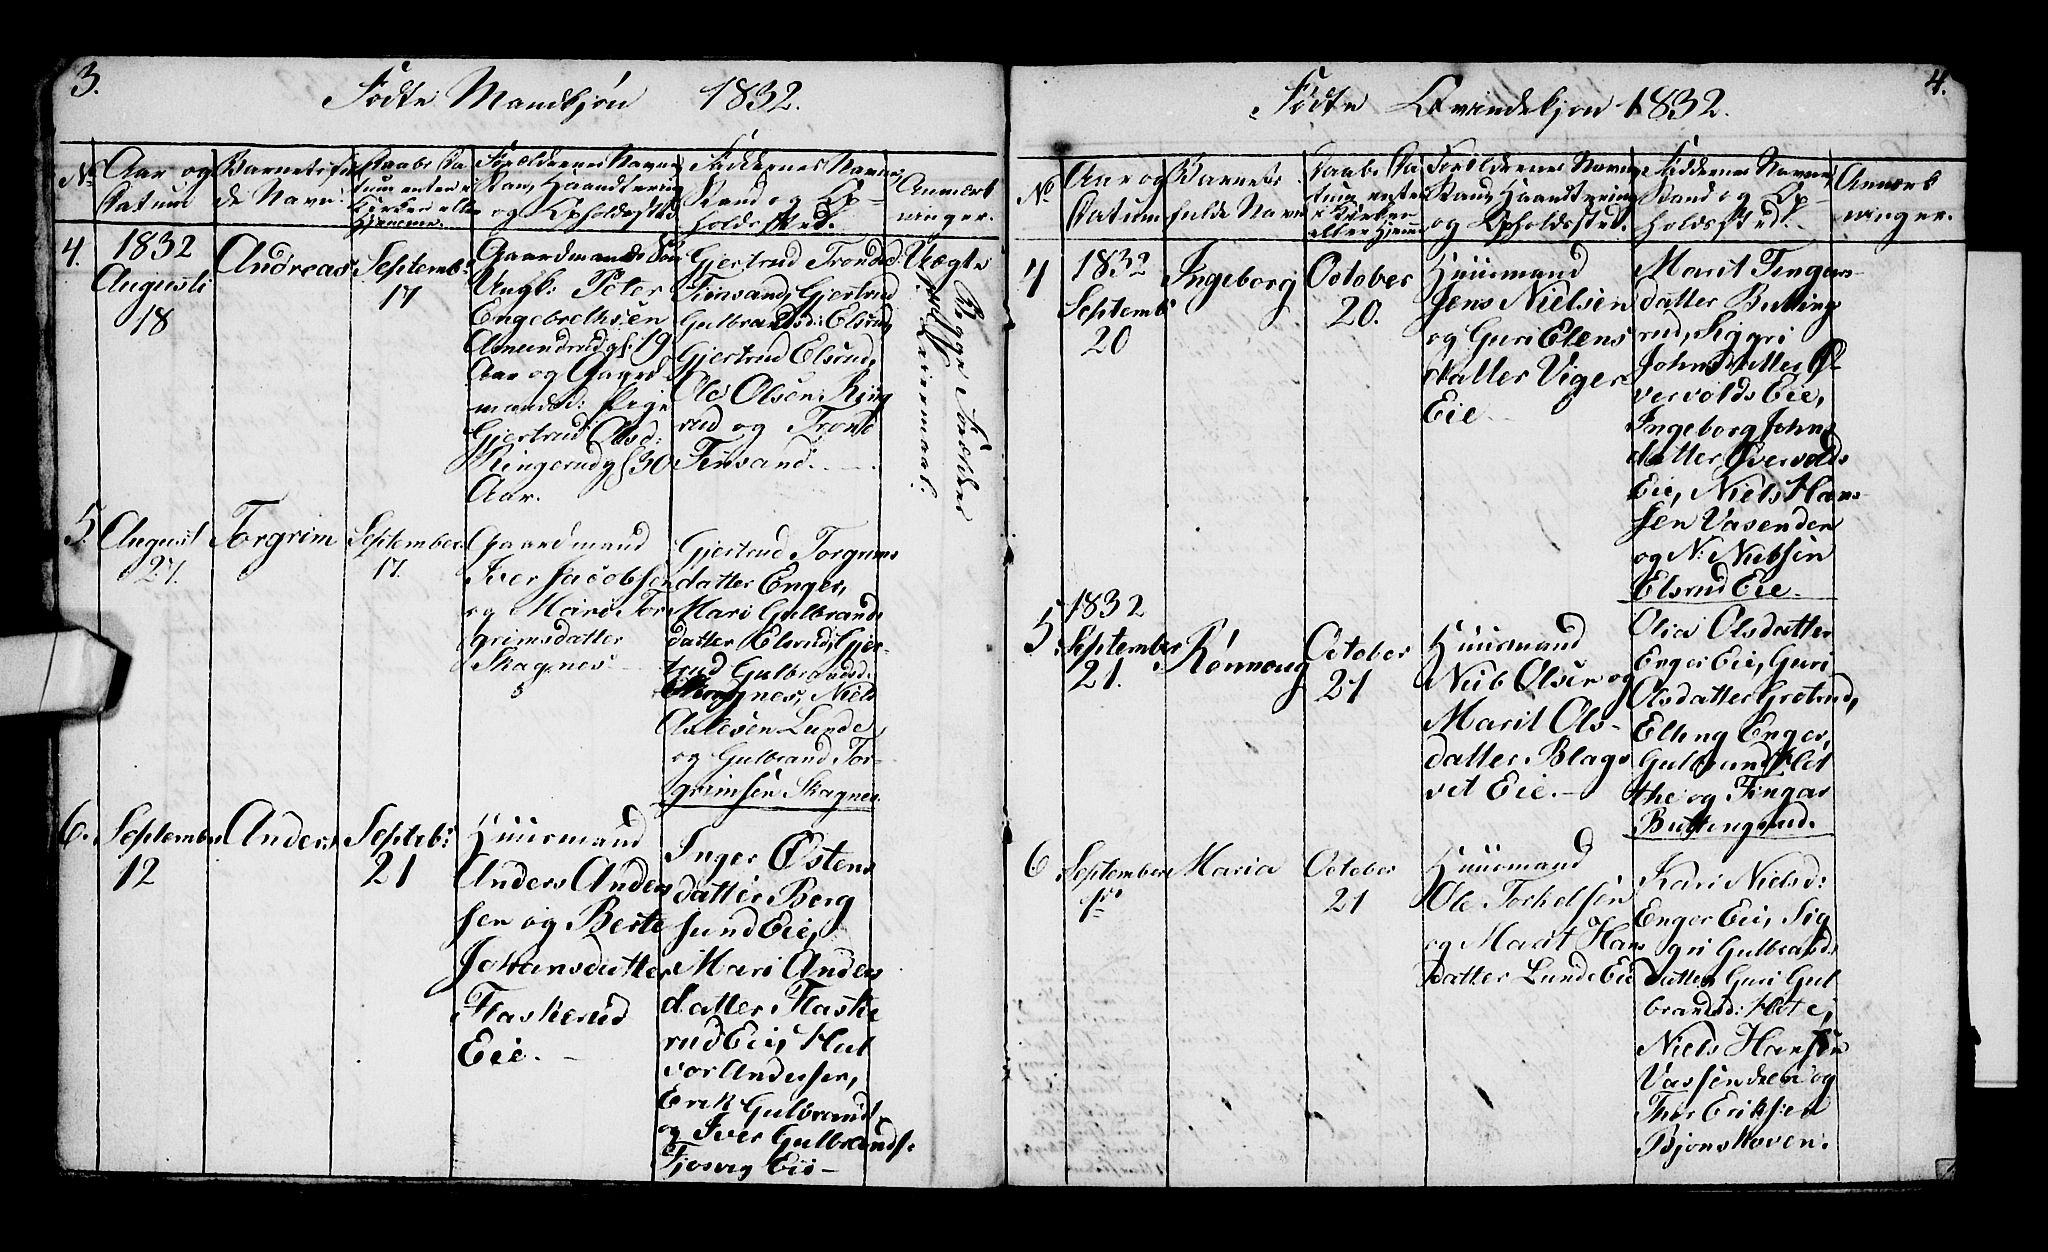 3.
Fødte Mandkjøn 1832.
No
Aar og
Datum
Barnets ful-
de Navn.
Daabs Da-
tum enten i
Kirken eller
Hjemme.
Forældrenes Navne
Stand, Haandtering
og Opholdssted
Faddernes Navne,
Stand og Op-
holdssted.
Anmærk
ninger.
4.
1832
Augusti
18
Andreas
Septemb:
17
Gaardmands Søn
Ungk: Peter
Engebrethsen
Asmundrud gl: 19
Aar og Gaard
mandsd: Pige
Gjertrud Olsd:
Ringerud gl 30
Aar.
Gjertrud Tronds:
Finsand, Gjertrud
Gulbrandsd: Elsrud
Gjertrud Elsrud,
Ole Olsen Ring
rud og Trond
Finsand.
Uægte
Begge Forældres
Leiermaal:
5.
August
27.
Torgrim
September
17.
Gaardmand
Iver Jacobsen
og Mari Tor
grimsdatter
Skagnes
Gjertrud Torgrims
datter Enger,
Mari Gulbrands
datter Elsrud, Gjer-
trud Gulbrandsd:
Skagnes, Niels
Aslesen Lunde
og Gulbrand Tor-
grimsen Skagnes.
6.
September
12
Anders
Septeb:
21
Huusmand
Anders Ander
sen og Berte
Johansdatter
Flaskerud
Eie. —
Inger Østens
datter Berg
sund Eie,
Mari Anders
datter Flaske
rud Eie, Hal
vor Andersen,
Erik Gulbrands.
og Iver Gulbrands.
Fjosvig Eie —
4.
Fødte Qvindekjøn 1832.
No
Aar og
Datum
Barnets
fulde Navn
Daabs Da
tum, enten
i Kirken
eller Hjemme
Forældrenes Navne
Stand, Haandtering
og Opholdssted.
Faddernes Navne,
Stand og Op-
holdssted.
Anmærk
ninger.
4
1832
Septemb
20
Ingeborg
October
20.
Huusmand
Jens Nielsen
og Guri Elens
datter Viger
Eie
Marit Fingars-
datter Butting
rud, Siggri
Johnsdatter Ø-
vervolds Eie,
Ingeborg Johns
datter Øvervolds
Eie, Niels Han-
sen Vasenden
og N: Nielsen
Elsrud Eie.
5.
1832
September
21.
Rønnoug
October
21
Huusmand
Niels Olsen og
Marit Ols-
datter Blags
vet Eie.
Olia Olsdatter
Enger Eie, Guri
Olsdatter Grøterud,
Elling Enger,
Gulbrand Klöt
the og Fingar
Buttingsrud.
6
September
Maria
October
21
Huusmand
Ole Torkelsen
og Marit Han
datter Lunde Eie
Kari Nielsd:
Enger Eie, Sig
gri Gulbrands
datter, Guri Gul
brandsd: Kløte,
Niels Hansen
Vassenden og
Thor Eriksen
Bjonskoven.